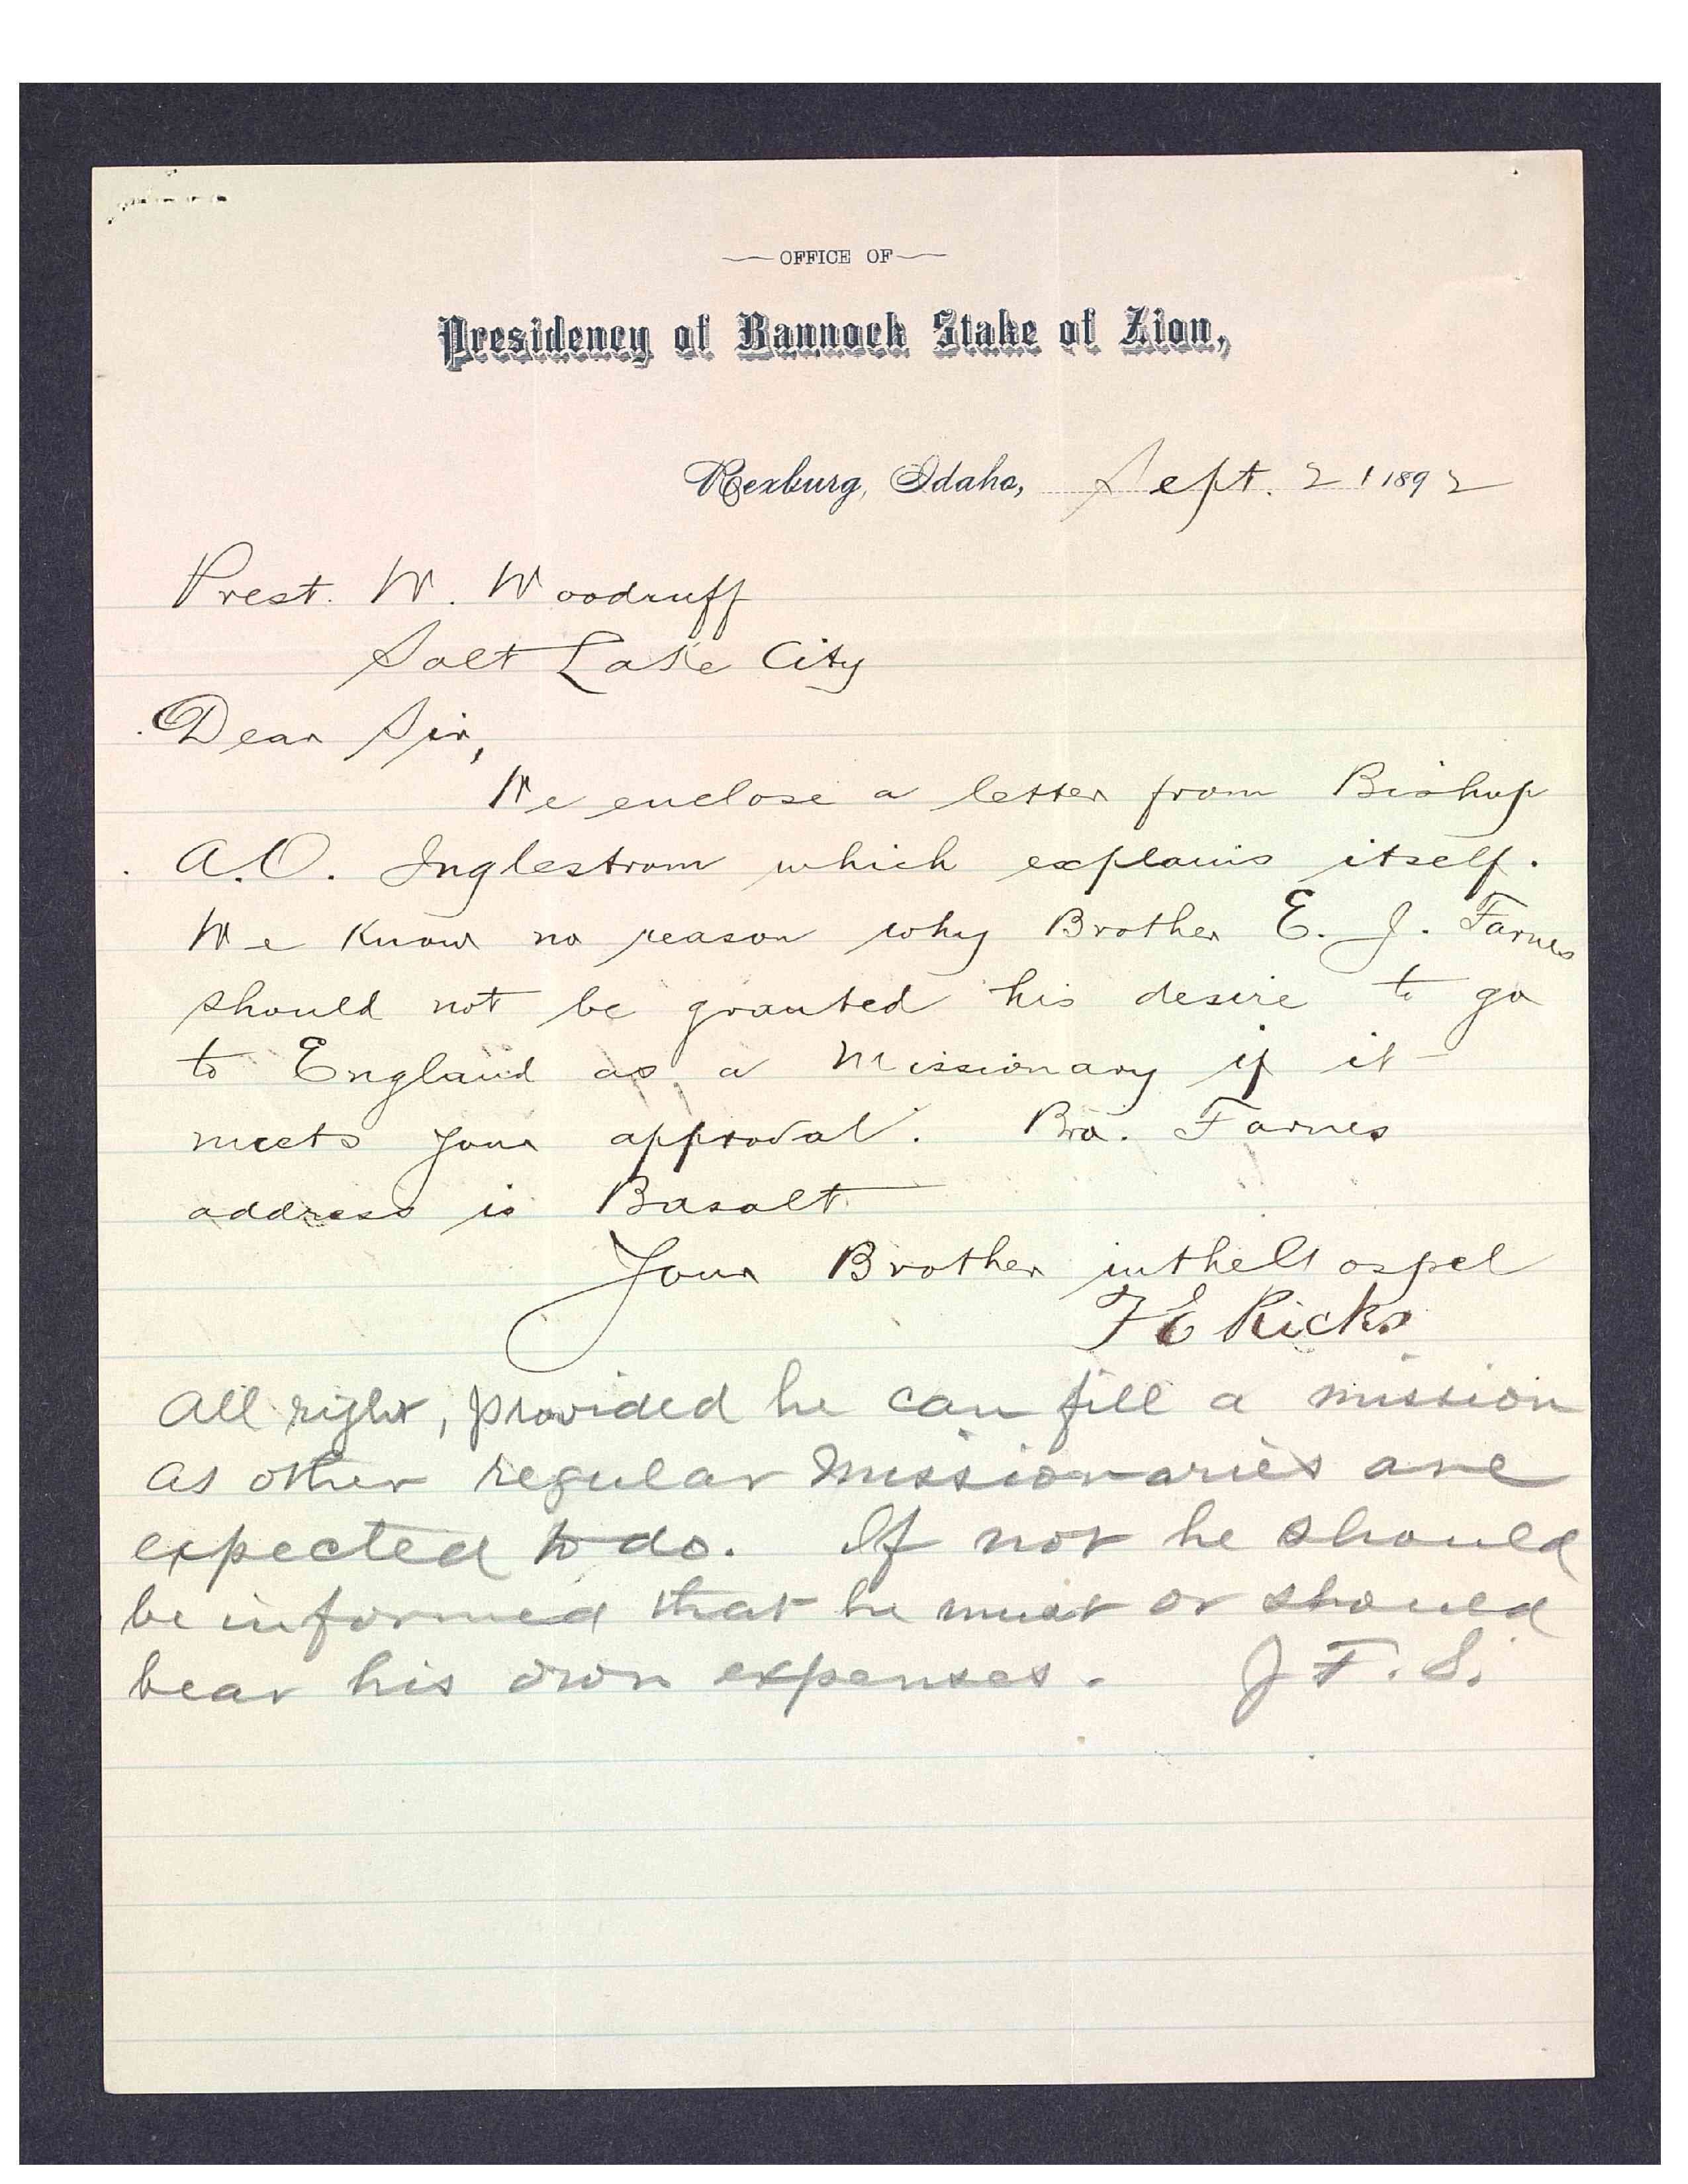 OFFICE OF
Presidency of Bannock Stake of Zion,
Rexburg, Idaho, Sept. 21 1892
Prest. W. Woodruff
Salt Lake City
Dear Sir,
We enclose a letter from Bishop
A.O. Inglestrom which explains itself.
We know no reason why Brother E. J. Farnes
should not be granted his desire to go
to England as a Missionary if it
meets your approval. Bro. Farnes
address is Basalt
Your Brother in the Gospel
T E Ricks
All right, provided he can fill a mission
as other regular missionaries are
expected to do. If not he should
be informed that he must or should
bear his own expenses. J. F. S.